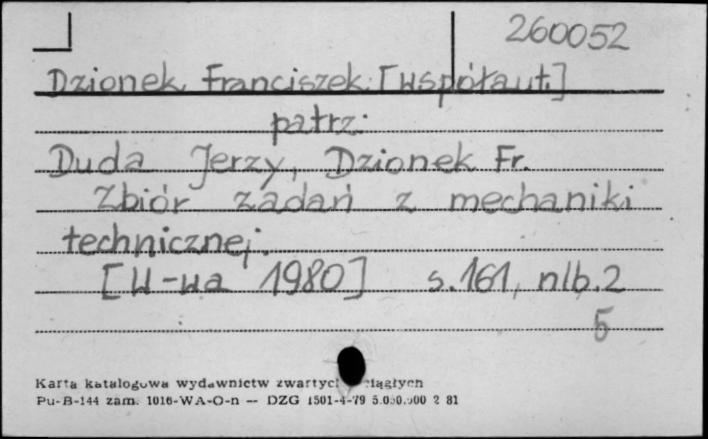 260052
Dzionek Franciszek [współaut.]
patrz:
Duda Jerzy, Dzionek Fr.
Zbiór zadań z mechaniki
technicznej.
[W-wa 1980] s.161, nlb.2
5
Karta katalogowa wydawnictw zwartych ciągłych
Pu-B-144 zam. 1016-WA-O-n — DZG 1501-4-79 5.000.000 2 81